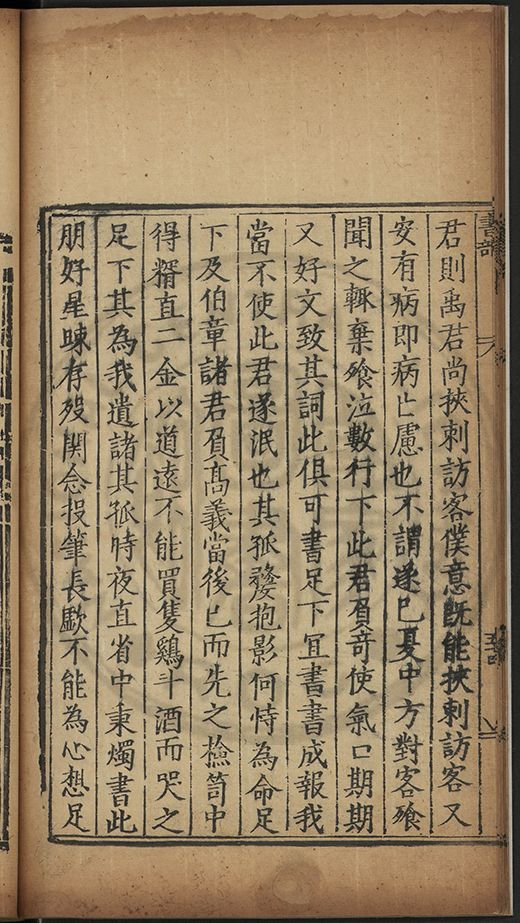 君則禹君尚挾刺訪客僕意旣能挾刺訪客又
安有病即病亡慮也不謂遂已憂中方對客飱
聞之輒棄飱泣數行下此君負竒使氣口期期
又好文致其詞此俱可書足下冝書書成報我
當不使此君遂泯也其孤嫠抱影何恃為命足
下及伯章諸君負髙義當後已而先之撿笥中
得糈直二金以道遠不能買隻鷄斗酒而哭之
足下其為我遺諸其孤時夜直省中秉燭書此
朋好星踈存殁関念投筆長歔不能為心想足
書部